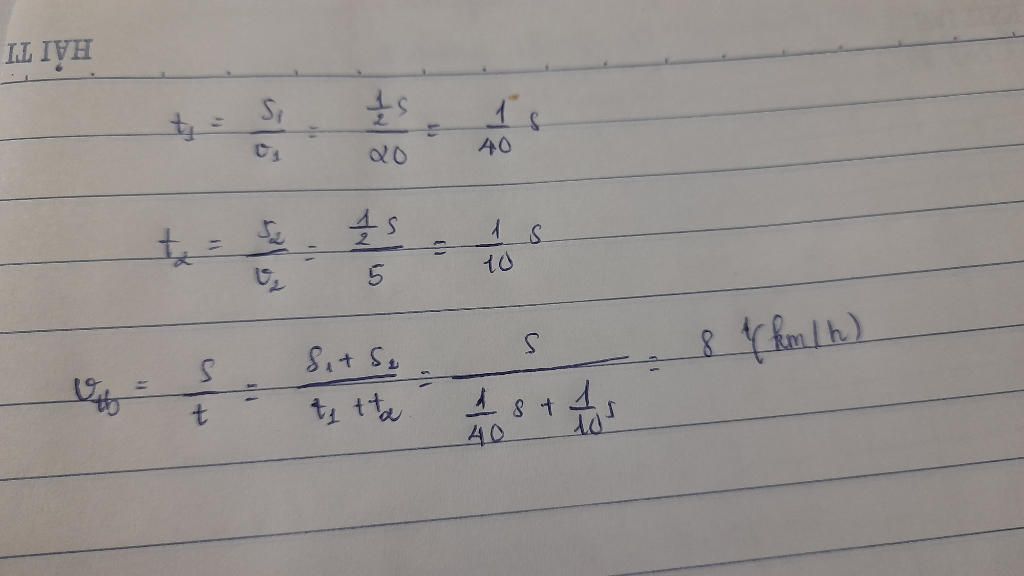 HẢI TI
t₁ = S₁/v₁ = (1/2 S)/20 = 1/40 S
t₂ = S₂/v₂ = (1/2 S)/5 = 1/10 S
v_tb = S/t = (S₁ + S₂)/(t₁ + t₂) = S/(1/40 S + 1/10 S) = 8 (km/h)